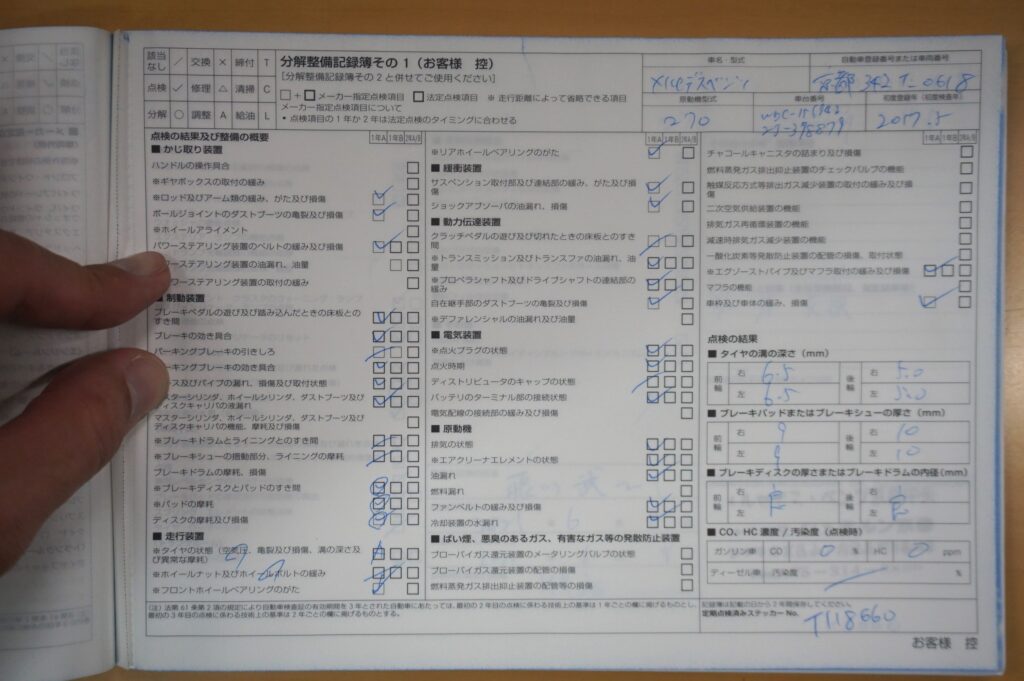 該当なし ／ 交換 × 締付 T
点検 ✓ 修理 △ 清掃 C
分解 ○ 調整 A 給油 L
分解整備記録簿その1（お客様 控）
[分解整備記録簿その2と併せてご使用ください]
□+□ メーカー指定点検項目 □ 法定点検項目 ※ 走行距離によって省略できる項目
メーカー指定点検項目について
・点検項目の1年か2年は法定点検のタイミングに合わせる
車名・型式
自動車登録番号または車両番号
京都 342 T 0618
原動機型式
車台番号
初度登録年（初度検査年）
270
2017.5
点検の結果及び整備の概要
1年A 1年B 2年A
■ かじ取り装置
ハンドルの操作具合
※ギヤボックスの取付の緩み
※ロッド及びアーム類の緩み、がた及び損傷
ボールジョイントのダストブーツの亀裂及び損傷
※ホイールアライメント
パワーステアリング装置のベルトの緩み及び損傷
ワーステアリング装置の油漏れ、油量
ステアリング装置の取付の緩み
■ 制動装置
ブレーキペダルの遊び及び踏み込んだときの床板とのすき間
ブレーキの効き具合
パーキングブレーキの引きしろ
ーキングブレーキの効き具合
ース及びパイプの漏れ、損傷及び取付状態
マスターシリンダ、ホイールシリンダ、ダストブーツ及びディスクキャリパの液漏れ
マスターシリンダ、ホイールシリンダ、ダストブーツ及びディスクキャリパの機能、摩耗及び損傷
※ブレーキドラムとライニングとのすき間
※ブレーキシューの摺動部分、ライニングの摩耗
ブレーキドラムの摩耗、損傷
※ブレーキディスクとパッドのすき間
※パッドの摩耗
ディスクの摩耗及び損傷
■ 走行装置
※タイヤの状態（空気圧、亀裂及び損傷、溝の深さ及び異常な摩耗）
※ホイールナット及びホイールボルトの緩み
※フロントホイールベアリングのがた
1年A 1年B 2年A
※リアホイールベアリングのがた
■ 緩衝装置
サスペンション取付部及び連結部の緩み、がた及び損傷
ショックアブソーバの油漏れ、損傷
■ 動力伝達装置
クラッチペダルの遊び及び切れたときの床板とのすき間
※トランスミッション及びトランスファの油漏れ、油量
※プロペラシャフト及びドライブシャフトの連結部の緩み
自在継手部のダストブーツの亀裂及び損傷
※デファレンシャルの油漏れ及び油量
■ 電気装置
※点火プラグの状態
点火時期
ディストリビュータのキャップの状態
バッテリのターミナル部の接続状態
電気配線の接続部の緩み及び損傷
■ 原動機
排気の状態
※エアクリーナエレメントの状態
油漏れ
燃料漏れ
ファンベルトの緩み及び損傷
冷却装置の水漏れ
■ ばい煙、悪臭のあるガス、有害なガス等の発散防止装置
ブローバイガス還元装置のメータリングバルブの状態
ブローバイガス還元装置の配管の損傷
燃料蒸発ガス排出抑止装置の配管等の損傷
1年A 1年B 2年A
チャコールキャニスタの詰まり及び損傷
燃料蒸発ガス排出抑止装置のチェックバルブの機能
触媒反応方式等排出ガス減少装置の取付の緩み及び損傷
二次空気供給装置の機能
排気ガス再循環装置の機能
減速時排気ガス減少装置の機能
一酸化炭素等発散防止装置の配管の損傷、取付状態
※エグゾーストパイプ及びマフラ取付の緩み及び損傷
マフラの機能
車枠及び車体の緩み、損傷
点検の結果
■ タイヤの溝の深さ（mm）
前輪 右 6.5 後輪 右 5.0
左 6.5 左 5.0
■ ブレーキパッドまたはブレーキシューの厚さ（mm）
前輪 右 9 後輪 右 10
左 9 左 10
■ ブレーキディスクの厚さまたはブレーキドラムの内径（mm）
前輪 右 良 後輪 右 良
左 左
■ CO、HC濃度／汚染度（点検時）
ガソリン車 CO 0 % HC 0 ppm
ディーゼル車 汚染度 %
（注）法第61条第2項の規定により自動車検査証の有効期間を3年とされた自動車にあたっては、最初の2年目の点検に係わる技術上の基準は1年ごとの欄に掲げるものとし、最初の3年目の点検に係わる技術上の基準は2年ごとの欄に掲げるものとする。
記録簿は記載の日から2年間保存してください。
定期点検済みステッカーNo.
T118660
お客様 控